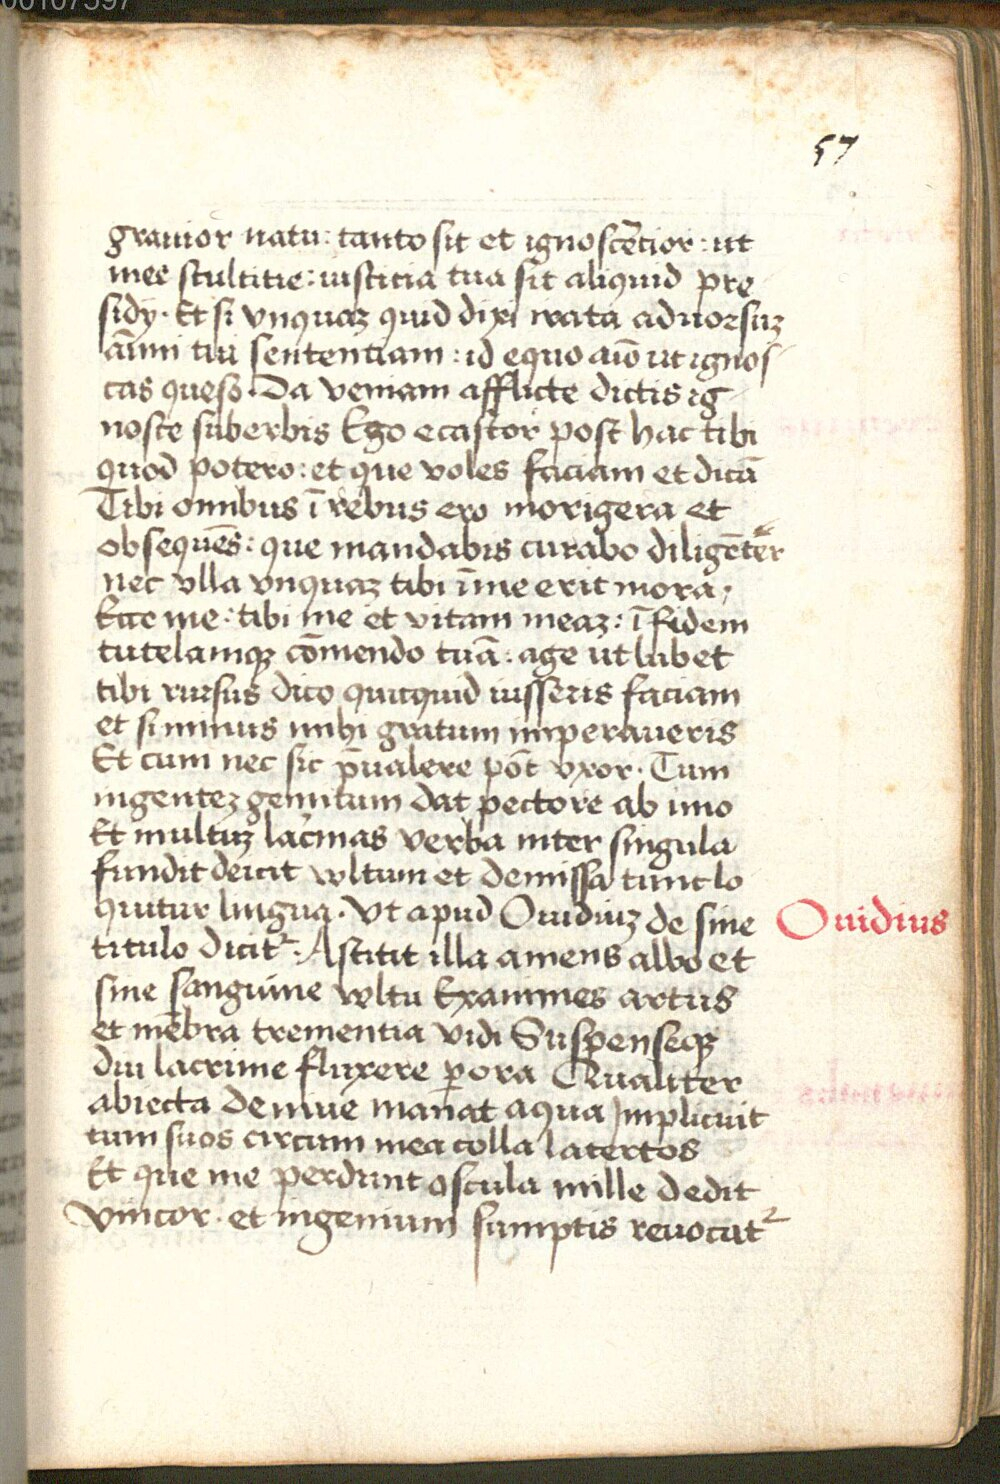 00107597
57
grauior natu: tanto sit et ignoscẽtior: ut
mee stultitie: iusticia tua sit aliquid pre
sidy. Et si vnquaz quid dixi irata aduorsuz
aĩmi tui sententiam: id equo aiõ ut ignos
cas queso. Da veniam afflicte dictis ig
nosce suberbis Ego ecastor post hac tibi
quod potero: et que voles faciam et dicã
Tibi omnibus ĩ rebus ero morigera et
obsequẽs: que mandabis curabo diligẽter
nec vlla vnquaz tibi ĩ me erit mora.
Ecce me: tibi me et vitam meaz: ĩ fidem
tutelamqꝫ cõmendo tuã: age ut lubet
tibi rursus dico quicquid iusseris faciam
et si minus mihi gratum imperaueris
Et cum nec sic p̃ualere põt vxor. Tum
ingentez gemitum dat pectore ab imo
Et multuz lac̃mas verba inter singula
fundit deicit vvltum et demissa tunc lo
quitur lingua. Vt apud Ouidiuz de sine
Ouidius
titulo dicit᷑. Astitit illa amens albo et
sine sanguine vvltu Exanimes artus
et mẽbra trementia vidi Suspenseqꝫ
diu lacrime fluxere ꝑ ora Qualiter
abiecta de niue manat aqua Implicuit
tum suos circum mea colla lacertos
Et que me perdunt oscula mille dedit
Vincor. et ingenium sumptis reuocat᷑